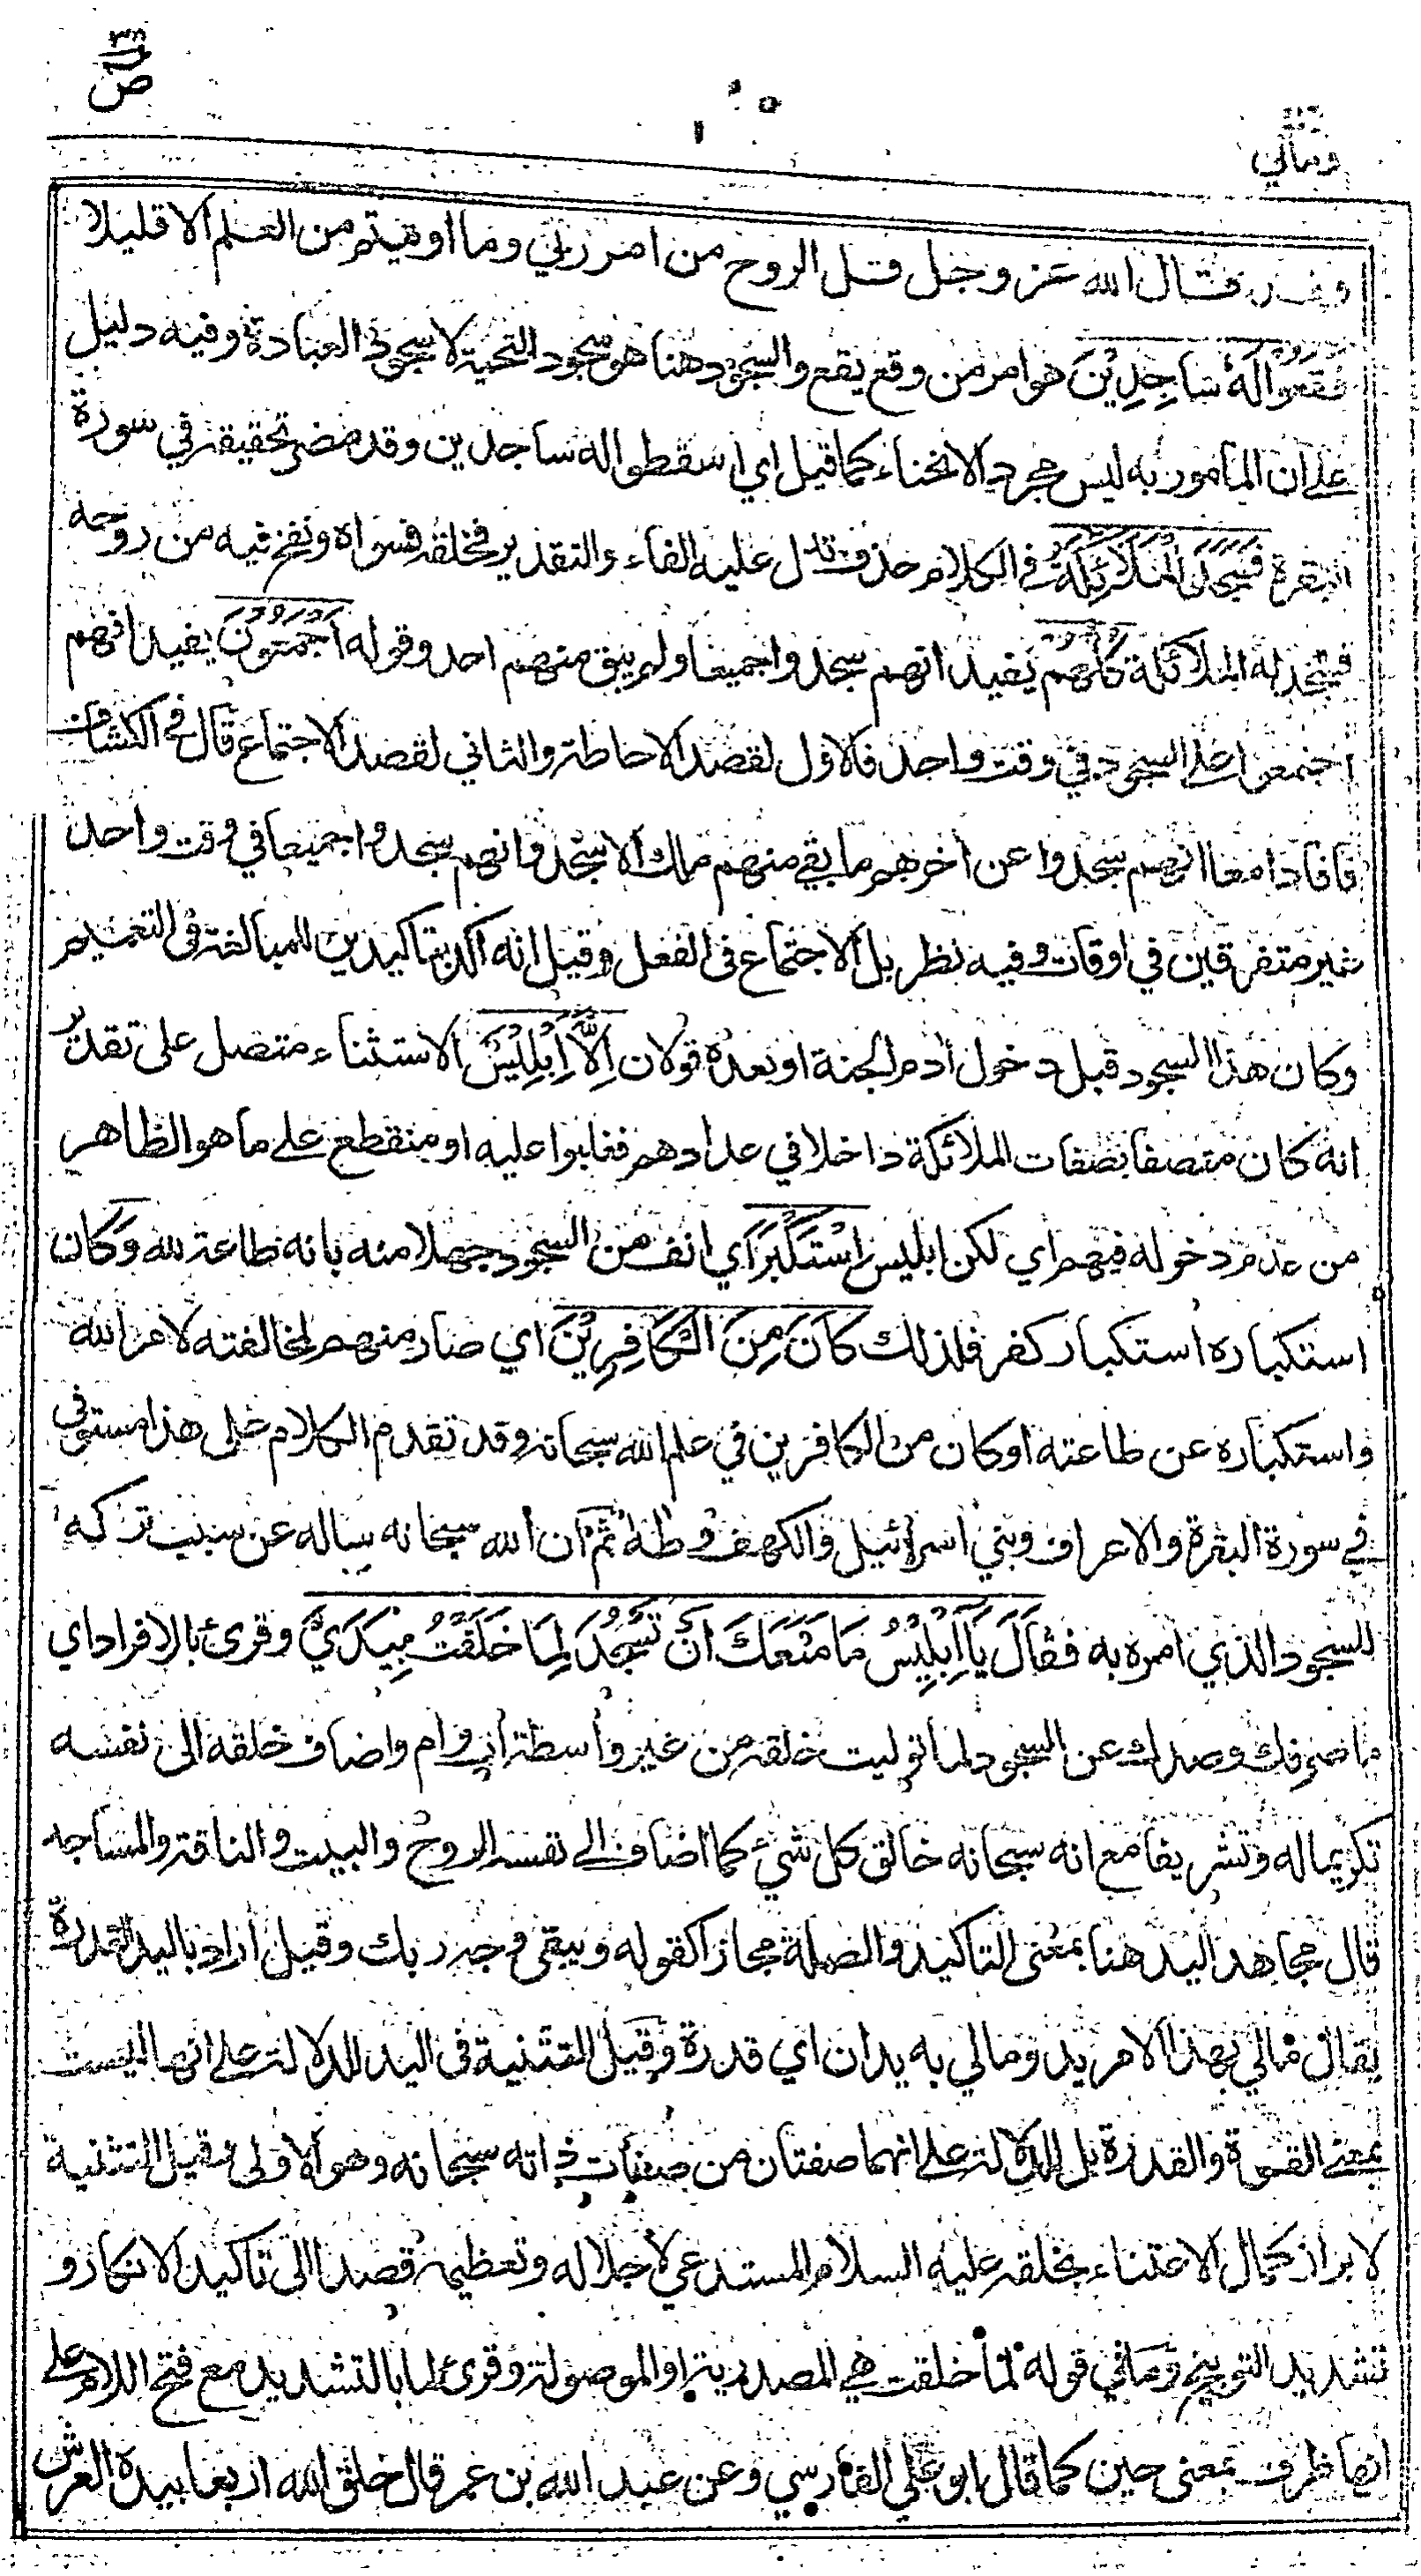 ص ٣٨
ومالي
وقد قال الله عز وجل قل الروح من امر ربي وما اوتيتم من العلم الا قليلا
فَقَعُوْا لَهُ سَاجِدِيْنَ هو امر من وقع يقع والسجود هنا هو سجود التحية لا سجود العبادة وفيه دليل
على ان المأمور به ليس مجرد الانحناء كما قيل اي اسقطوا له ساجدين وقد مضى تحقيقه في سورة
البقرة فَسَجَدَ الْمَلَائِكَةُ في الكلام حذف تدل عليه الفاء والتقدير فخلقه فسواه ونفخ فيه من روحه
فسجد له الملائكة كُلُّهُمْ يفيد انهم سجدوا جميعا ولم يبق منهم احد وقوله اَجْمَعُوْنَ يفيد انهم
اجتمعوا على السجود في وقت واحد فالاول لقصد الاحاطة والثاني لقصد الاجتماع قال في الكشاف
فافادا معا انهم سجدوا عن اخرهم ما بقي منهم ملك الا سجد وانهم سجدوا جميعا في وقت واحد
غير متفرقين في اوقات وفيه نظر بل الاجتماع في الفعل وقيل انه اكد بتاكيدين للمبالغة في التعميم
وكان هذا السجود قبل دخول ادم الجنة او بعده قولان اِلَّا اِبْلِيْسَ الاستثناء متصل على تقدير
انه كان متصفا بصفات الملائكة داخلا في عدادهم فغلبوا عليه او منقطع على ما هو الظاهر
من عدم دخوله فيهم اي لكن ابليس اِسْتَكْبَرَ اي انف من السجود جهلا منه بانه طاعة لله وَكان
استكباره استكبار كفر فلذلك كَانَ مِنَ الْكَافِرِيْنَ اي صار منهم لمخالفته لامر الله
واستكباره عن طاعته او كان من الكافرين في علم الله سبحانه وقد تقدم الكلام على هذا مستوفى
في سورة البقرة والاعراف وبني اسرائيل والكهف وطه ثم ان الله سبحانه ساله عن سبب تركه
للسجود الذي امره به فقَالَ يَا اِبْلِيْسُ مَا مَنَعَكَ اَنْ تَسْجُدَ لِمَا خَلَقْتُ بِيَدَيَّ وقرئ بالافراد اي
ما صرفك وصدك عن السجود لما توليت خلقه من غير واسطة اب وام واضاف خلقه الى نفسه
تكريما له وتشريفا مع انه سبحانه خالق كل شيء كما اضاف الى نفسه الروح والبيت والناقة والمساجد
قال مجاهد اليد هنا بمعنى التاكيد والصلة مجازا كقوله ويبقى وجه ربك وقيل اراد باليد القدرة
يقال مالي بهذا الامر يد ومالي به يدان اي قدرة وقيل التثنية في اليد للدلالة على انها ليست
بمعنى القوة والقدرة بل للدلالة على انهما صفتان من صفات ذاته سبحانه وهو الاولى وقيل التثنية
لابراز كمال الاعتناء بخلقه عليه السلام المستدعي لاجلاله وتعظيمه قصدا الى تاكيد الانكار و
تشديد التوبيخ وما في قوله لما خلقت هي المصدرية او الموصولة وقرئ لما بالتشديد مع فتح اللام على
انها ظرف بمعنى حين كما قال ابو علي الفارسي وعن عبد الله بن عمر قال خلق الله اربعا بيده العرش